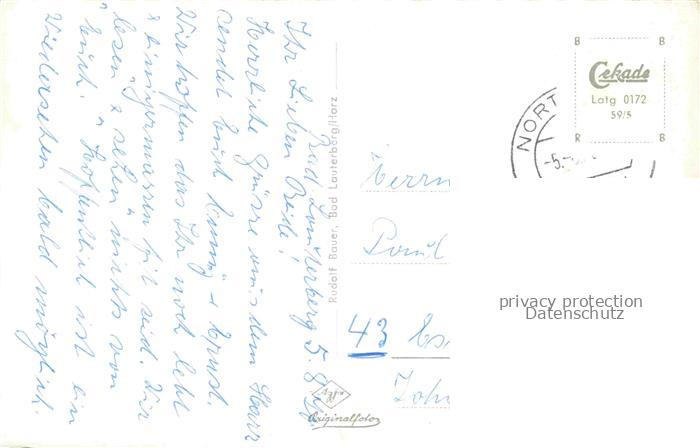 Bad Lauterberg 5. 8.
Ihr Lieben Beide!
Herrliche Grüsse aus dem Harz
sendet Euch Ernst.
Wir hoffen das Ihr noch lebt
& einigermassen fit seid. Wir
lesen & sehen nichts von
Euch. Hoffentlich ist ein
Wiedersehen bald möglich.
Rudolf Bauer, Bad Lauterberg/Harz
Herrn
Paul
43 Es
Joh
Agfa
Originalfoto
B B
Cekade
Latg 0172
59/5
R B
NORT
-5.-
privacy protection
Datenschutz